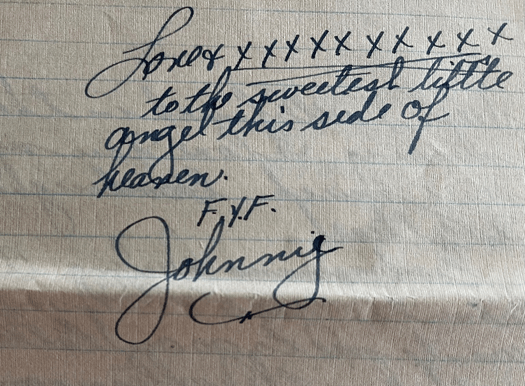 Love x x x x x x x x x x x
to the sweetest little
angel this side of
heaven.
F.Y.F.
Johnnie